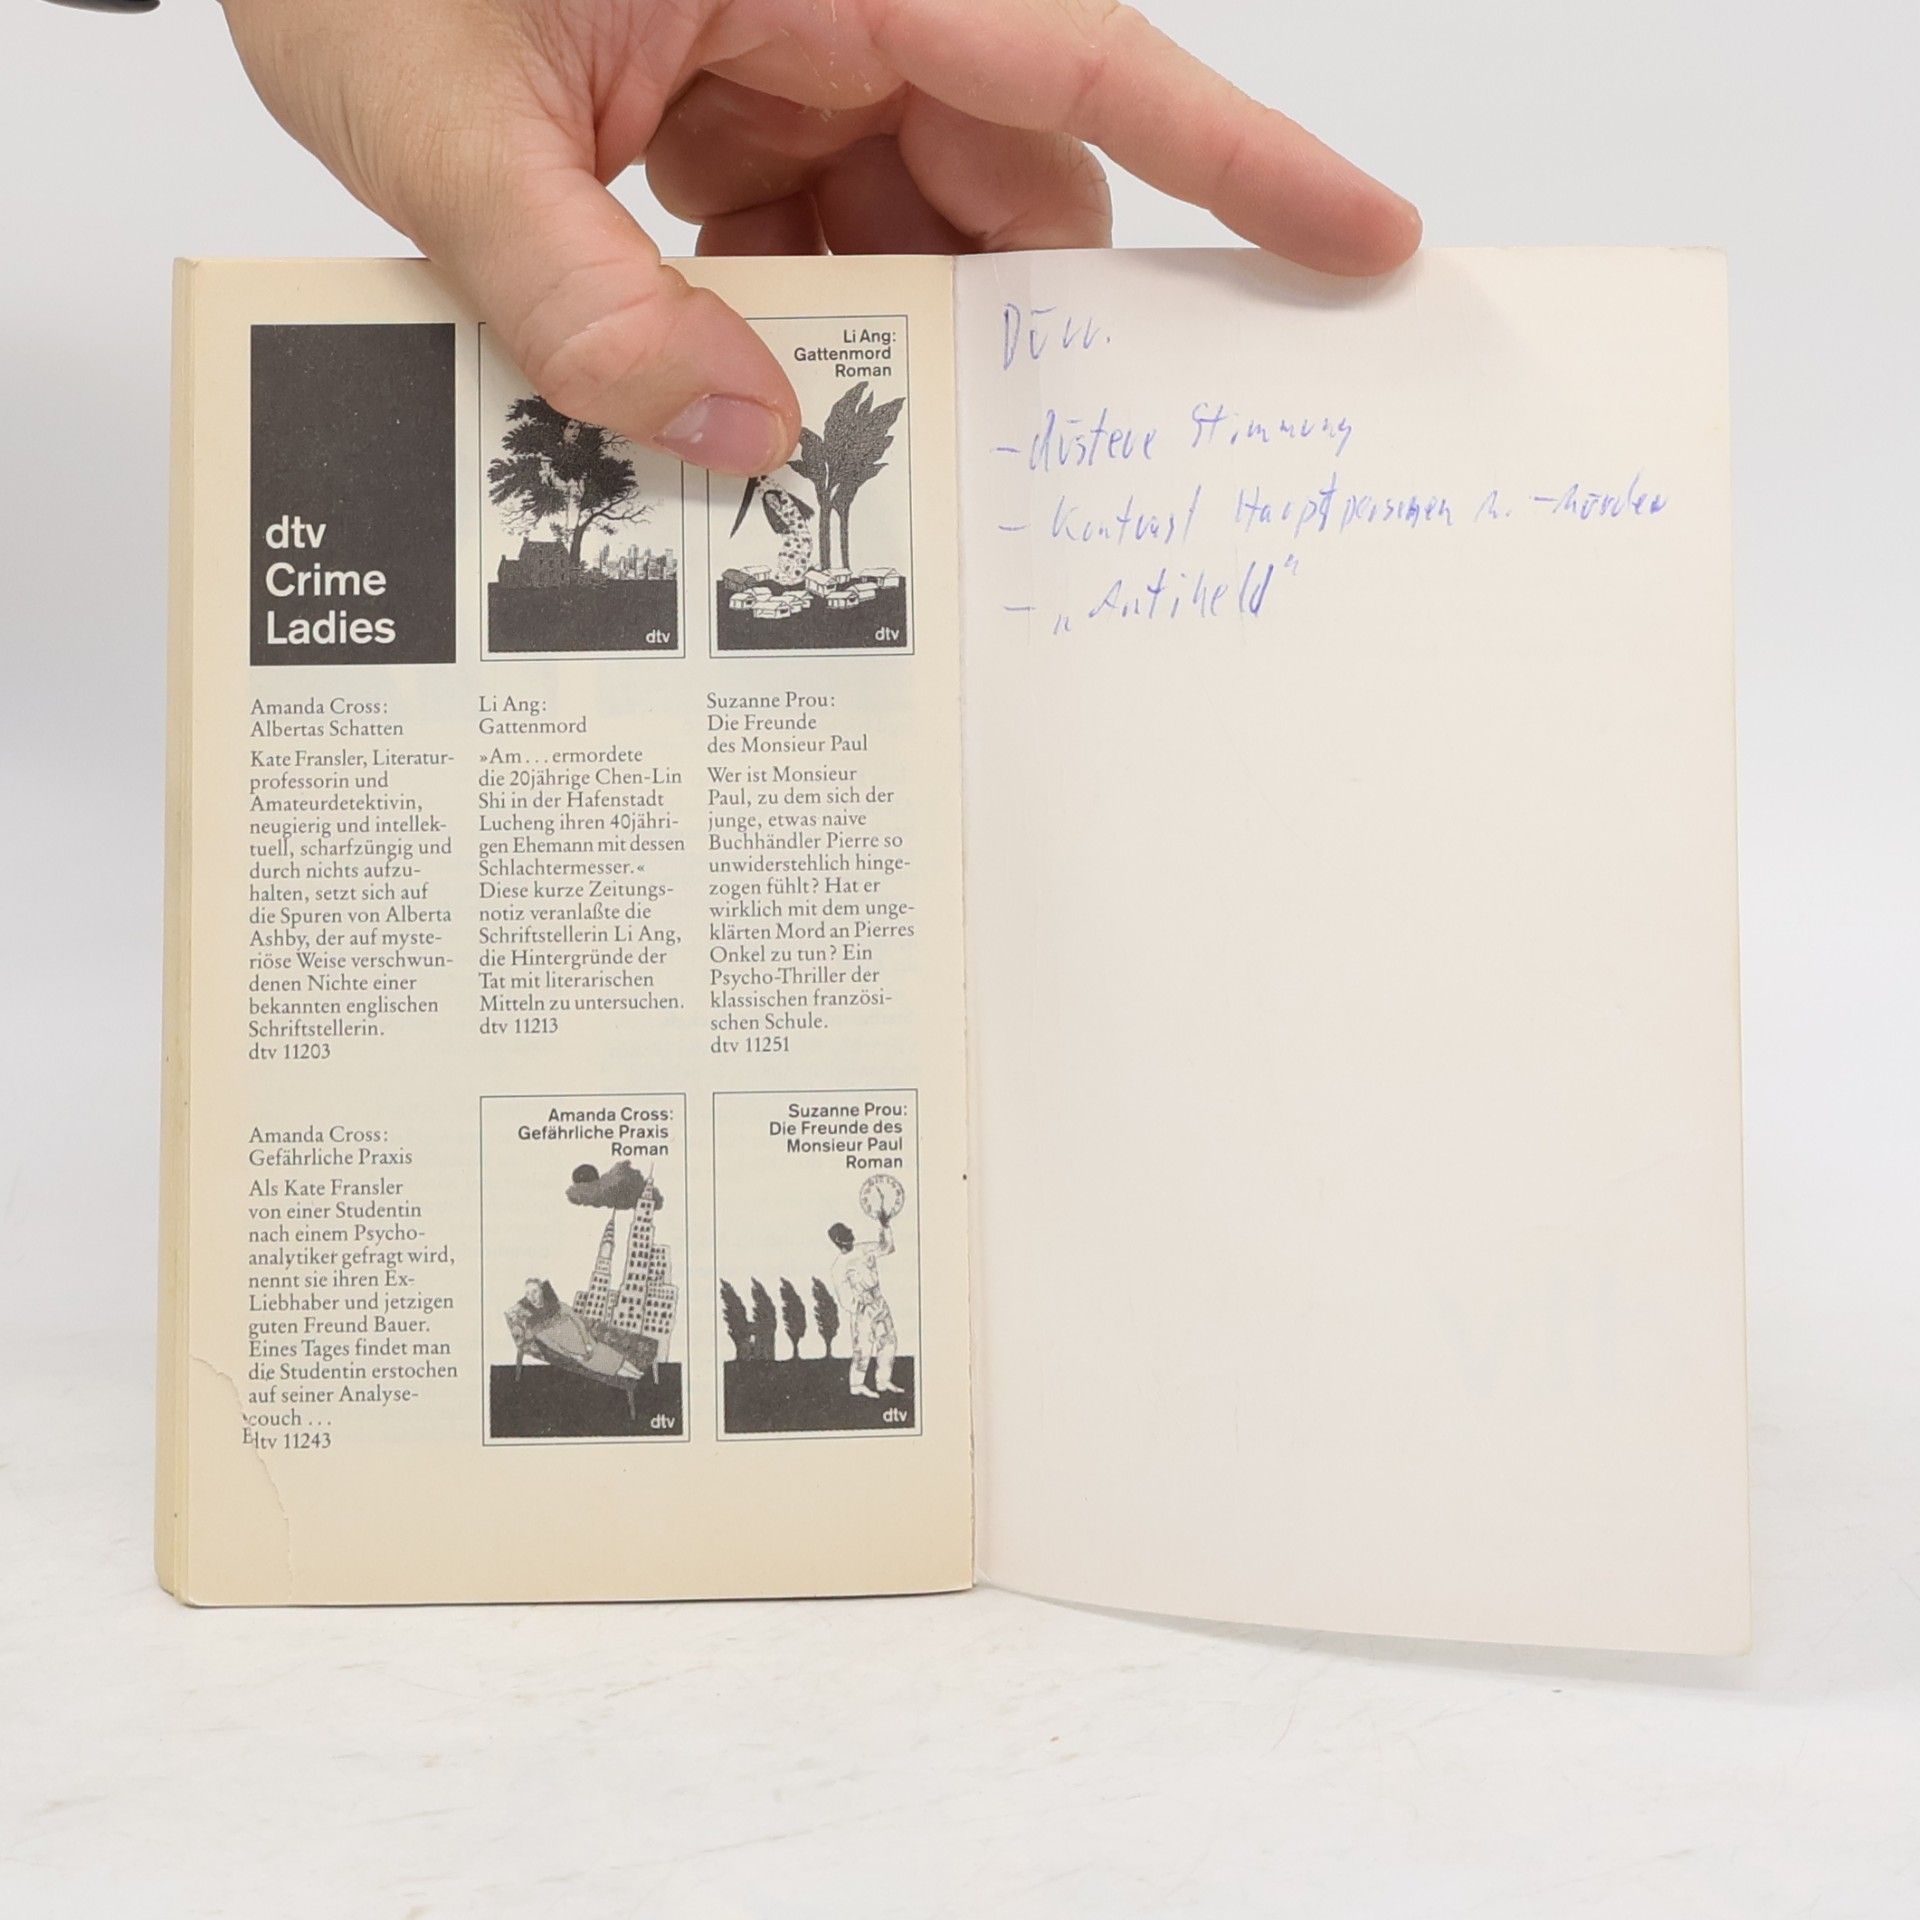 dtv
Crime
Ladies
dtv
Li Ang:
Gattenmord
Roman
dtv
Amanda Cross:
Albertas Schatten
Kate Fransler, Literatur-
professorin und
Amateurdetektivin,
neugierig und intellek-
tuell, scharfzüngig und
durch nichts aufzu-
halten, setzt sich auf
die Spuren von Alberta
Ashby, der auf myste-
riöse Weise verschwun-
denen Nichte einer
bekannten englischen
Schriftstellerin.
dtv 11203
Li Ang:
Gattenmord
»Am . . . ermordete
die 20jährige Chen-Lin
Shi in der Hafenstadt
Lucheng ihren 40jähri-
gen Ehemann mit dessen
Schlachtermesser.«
Diese kurze Zeitungs-
notiz veranlaßte die
Schriftstellerin Li Ang,
die Hintergründe der
Tat mit literarischen
Mitteln zu untersuchen.
dtv 11213
Suzanne Prou:
Die Freunde
des Monsieur Paul
Wer ist Monsieur
Paul, zu dem sich der
junge, etwas naive
Buchhändler Pierre so
unwiderstehlich hinge-
zogen fühlt? Hat er
wirklich mit dem unge-
klärten Mord an Pierres
Onkel zu tun? Ein
Psycho-Thriller der
klassischen französi-
schen Schule.
dtv 11251
Amanda Cross:
Gefährliche Praxis
Als Kate Fransler
von einer Studentin
nach einem Psycho-
analytiker gefragt wird,
nennt sie ihren Ex-
Liebhaber und jetzigen
guten Freund Bauer.
Eines Tages findet man
die Studentin erstochen
auf seiner Analyse-
couch . . .
dtv 11243
Amanda Cross:
Gefährliche Praxis
Roman
dtv
Suzanne Prou:
Die Freunde des
Monsieur Paul
Roman
dtv
Dürr.
- düstere Stimmung
- Kontrast Hauptpersonen
- „Antiheld"